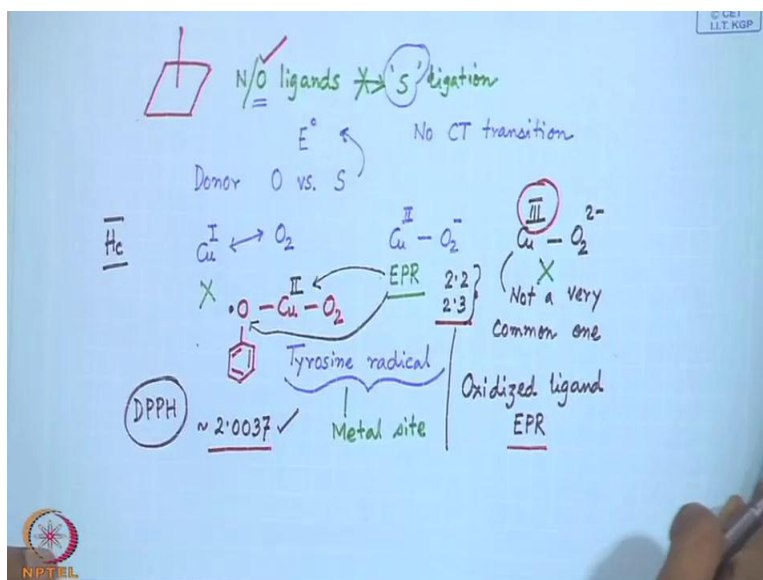 © CET
I.I.T. KGP
N/O ligands X→ 'S' ligation
E° No CT transition
Donor O vs. S
Hc
Cu^I ↔ O2 Cu^II – O2^- Cu^III – O2^2-
X ·O – Cu^II – O2 EPR 2.2 X
2.3 Not a very
common one
Tyrosine radical
Oxidized ligand
DPPH ~ 2.0037 ✓ Metal site EPR
NPTEL